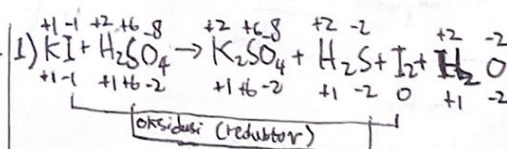 +1 -1 +2 +6 -8 +2 +6 -8 +2 -2 +2 -2
1) KI + H₂SO₄ → K₂SO₄ + H₂S + I₂ + H₂O
+1 -1 +1 +6 -2 +1 +6 -2 +1 -2 0 +1 -2
oksidasi (reduktor)